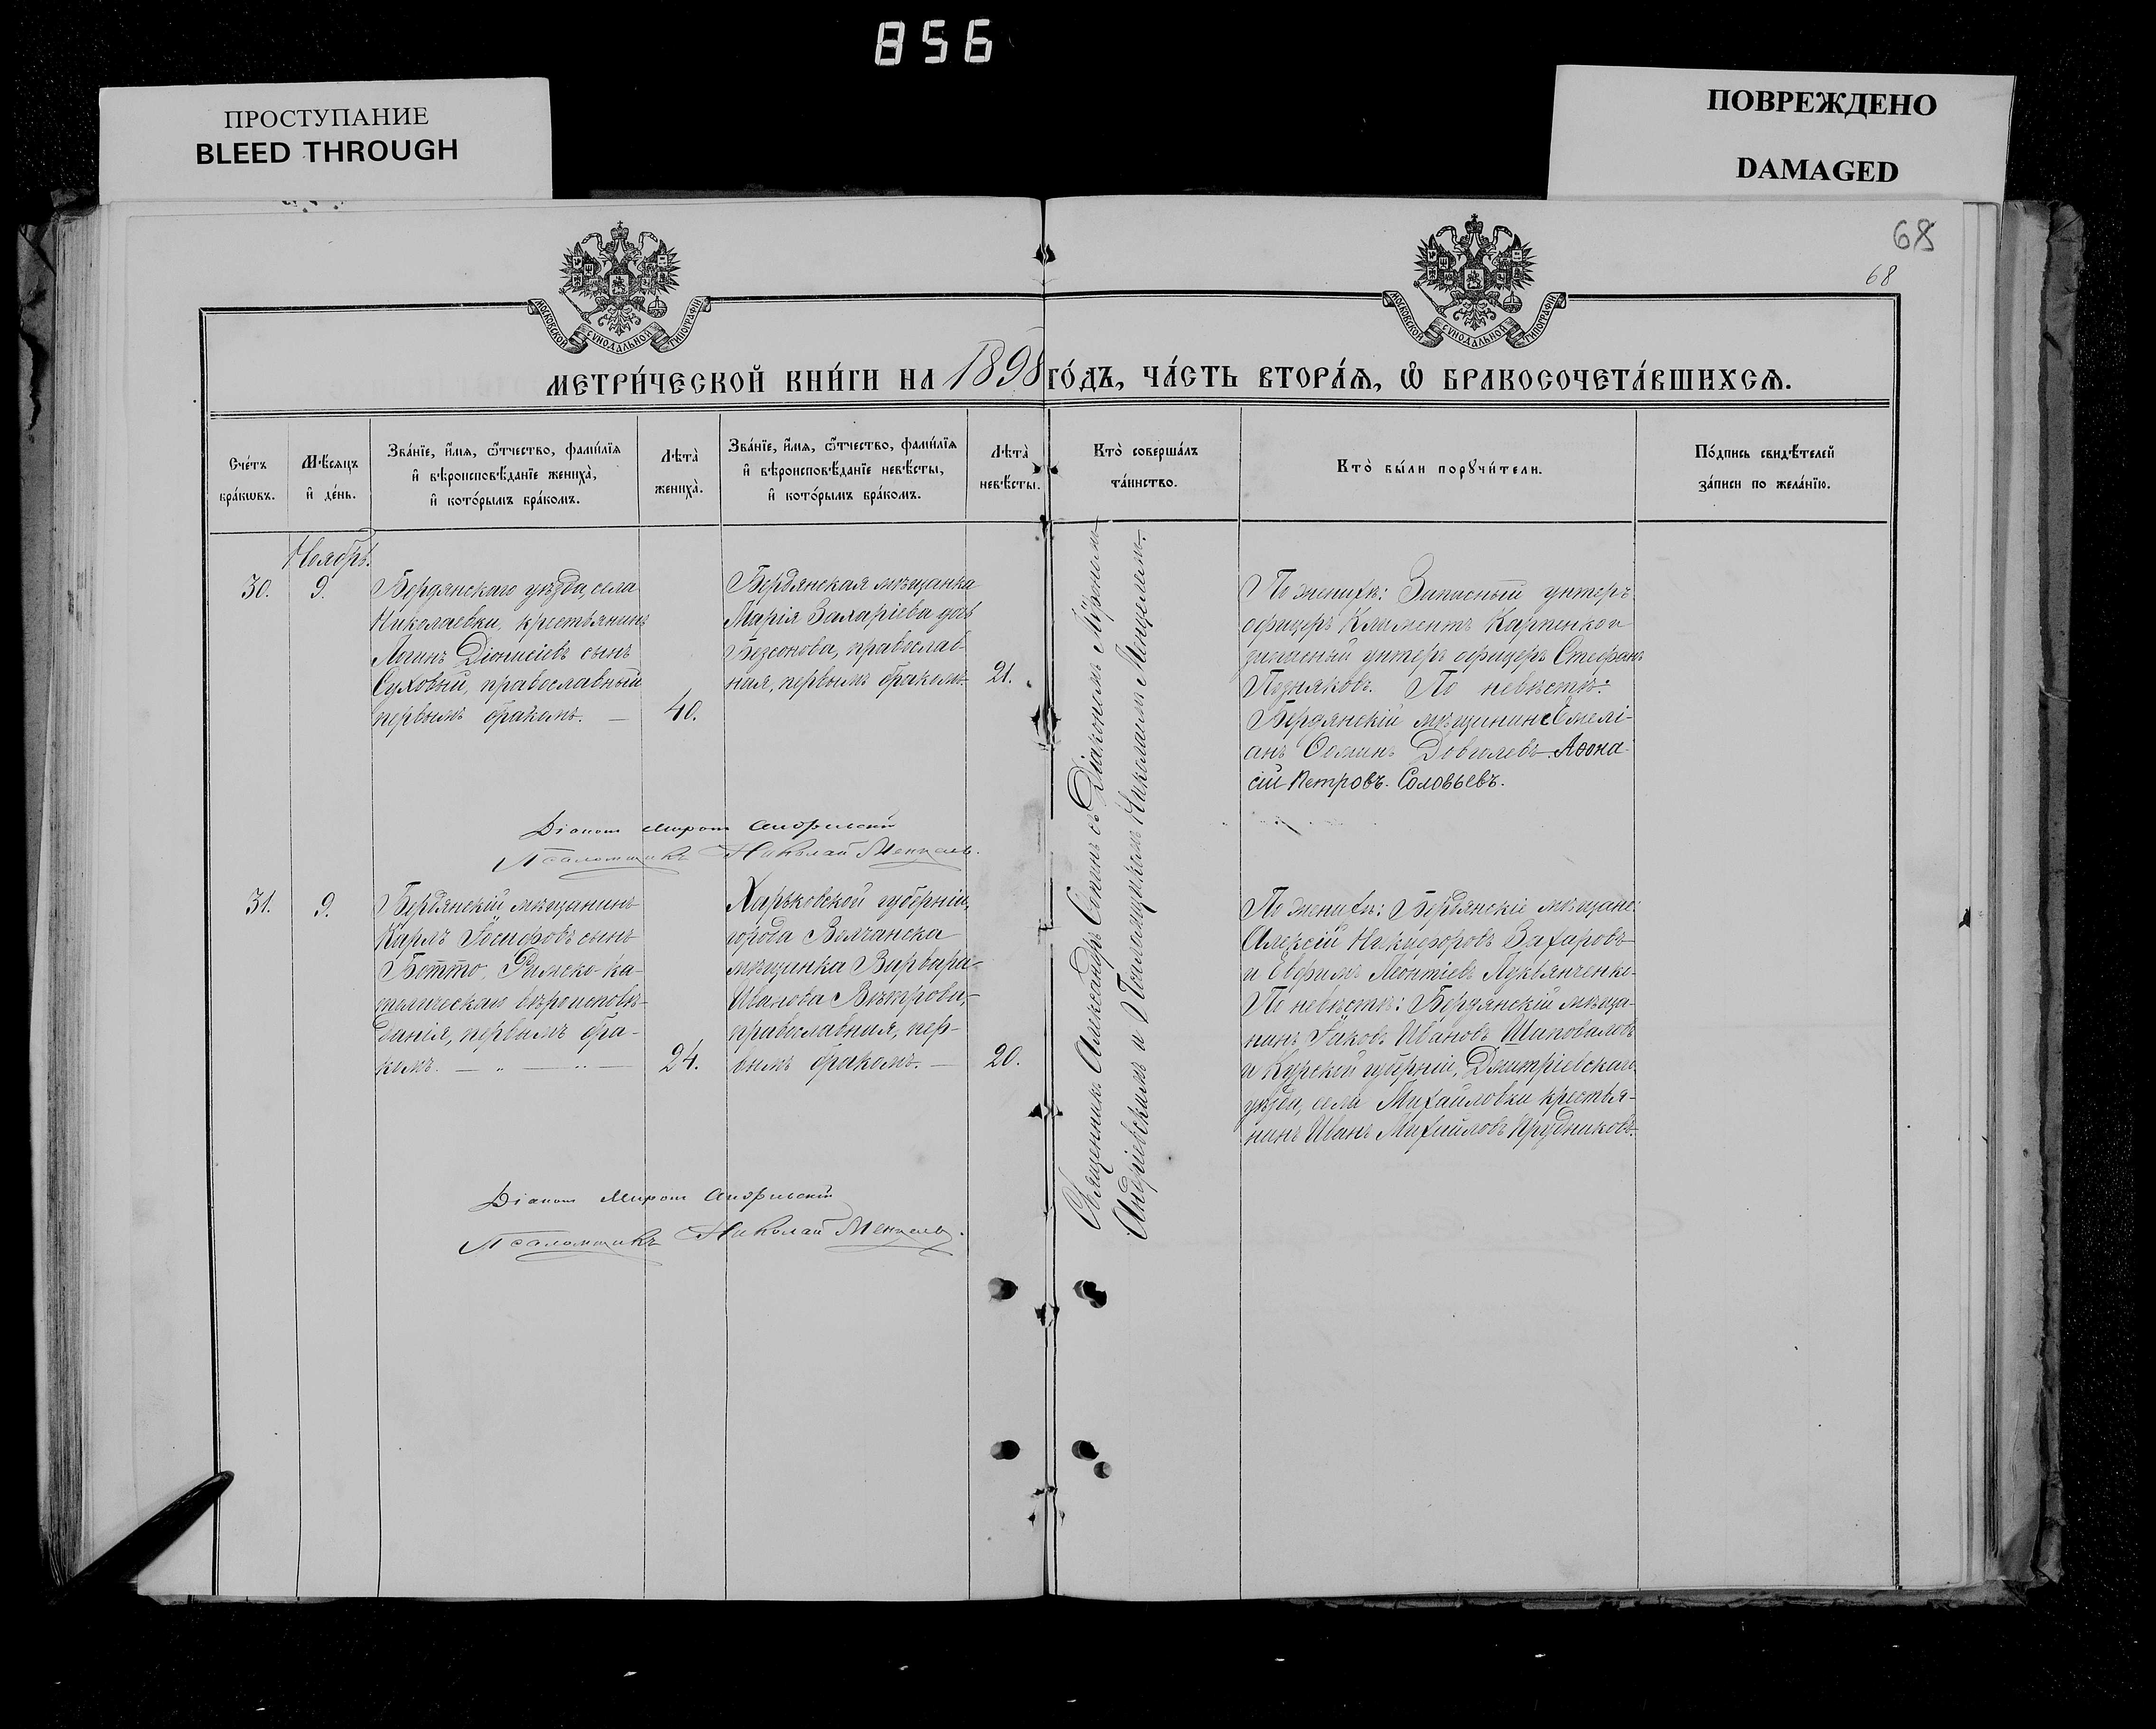 856
ПРОСТУПАНИЕ
BLEED THROUGH
ПОВРЕЖДЕНО
DAMAGED
68
68
МОСКОВСКОЙ СѴНОДАЛЬНОЙ ТИПОГРАФІИ
МОСКОВСКОЙ СѴНОДАЛЬНОЙ ТИПОГРАФІИ
МЕТРИ́ЧЕСКОЙ КНИ́ГИ НА 1898 ГО́ДЪ, ЧА́СТЬ ВТОРА́Ѧ, Ѽ БРАКОСОЧЕТА́ВШИХСѦ.
Сче́тъ
бра́кѡвъ.
Мѣ́сяцъ
и҆ де́нь.
Зва́нїе, и҆́мя, ѻ҆́тчество, фами́лїя
и҆ вѣроисповѣ́данїе жениха̀,
и҆ кото́рымъ бра́комъ.
Лѣта̀
жениха̀.
Зва́нїе, и҆́мя, ѻ҆́тчество, фами́лїя
и҆ вѣроисповѣ́данїе невѣ́сты,
и҆ кото́рымъ бра́комъ.
Лѣта̀
невѣ́сты.
Кто̀ соверша́лъ
та́инство.
Кто̀ бы́ли порꙋчи́тели.
По́дпись свидѣ́телей
за́писи по жела́нїю.
Ноябрь.
30.
9.
Бердянскаго уѣзда, села
Николаевки, крестьянинъ
Логинъ Діонисіевъ сынъ
Суховый, православный
первымъ бракомъ. —
40.
Бердянская мѣщанка
Марія Захаріева дочь
Безсонова, православ-
ная, первымъ бракомъ.
21.
Священникъ Александръ Сопинъ съ Діакономъ Мѵрономъ
Андріевскимъ и Псаломщикомъ Николаемъ Менцелемъ.
По женихѣ: Запасный унтеръ
офицеръ Климентъ Карпенко и
запасный унтеръ офицеръ Стефанъ
Поздняковъ. По невѣстѣ:
Бердянскій мѣщанинъ Емелі-
анъ Ѳоминъ Довгалевъ. Аѳана-
сій Петровъ Соловьевъ.
Діаконъ Миронъ Андріевскій
Псаломщикъ Николай Менцель.
31.
9.
Бердянскій мѣщанинъ
Карлъ Іосифовъ сынъ
Ботто, Римско-ка-
толическаго вѣроисповѣ-
данія, первымъ бра-
комъ. — " — " —
24.
Харьковской губерніи,
города Волчанска
мѣщанка Варвара
Иванова Вѣтрова,
православная, пер-
вымъ бракомъ. —
20.
По женихѣ: Бердянскіе мѣщане:
Алексій Никифоровъ Захаровъ
и Евфимъ Леонтіевъ Лукьянченко.
По невѣстѣ: Бердянскій мѣща-
нинъ Іаковъ Ивановъ Шаповаловъ
и Курской губерніи, Дмитріевскаго
уѣзда, села Михайловки крестья-
нинъ Иванъ Михайловъ Прудниковъ.
Діаконъ Миронъ Андріевскій
Псаломщикъ Николай Менцель.